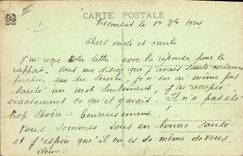 CARTE POSTALE
le 1er 1921
Chers oncle et tante
J'ai reçu lettre avec la réponse pour le
rapport. Vous me disiez que j'avais sauté
J'en ai même pas
sauté un mot seulement. J'ai recopié
exactement ce qu'il y avait. Il n'a pas été
trop sévère heureusement
Nous sommes tous en bonne santé
et j'espère qu'il en est de même de vous
deux